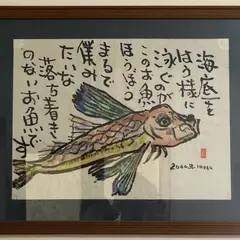 海底を
はう様に
泳ぐのが
このお魚
ほうぼう
まるで
僕み
たいな
落ち着き
のないお魚です